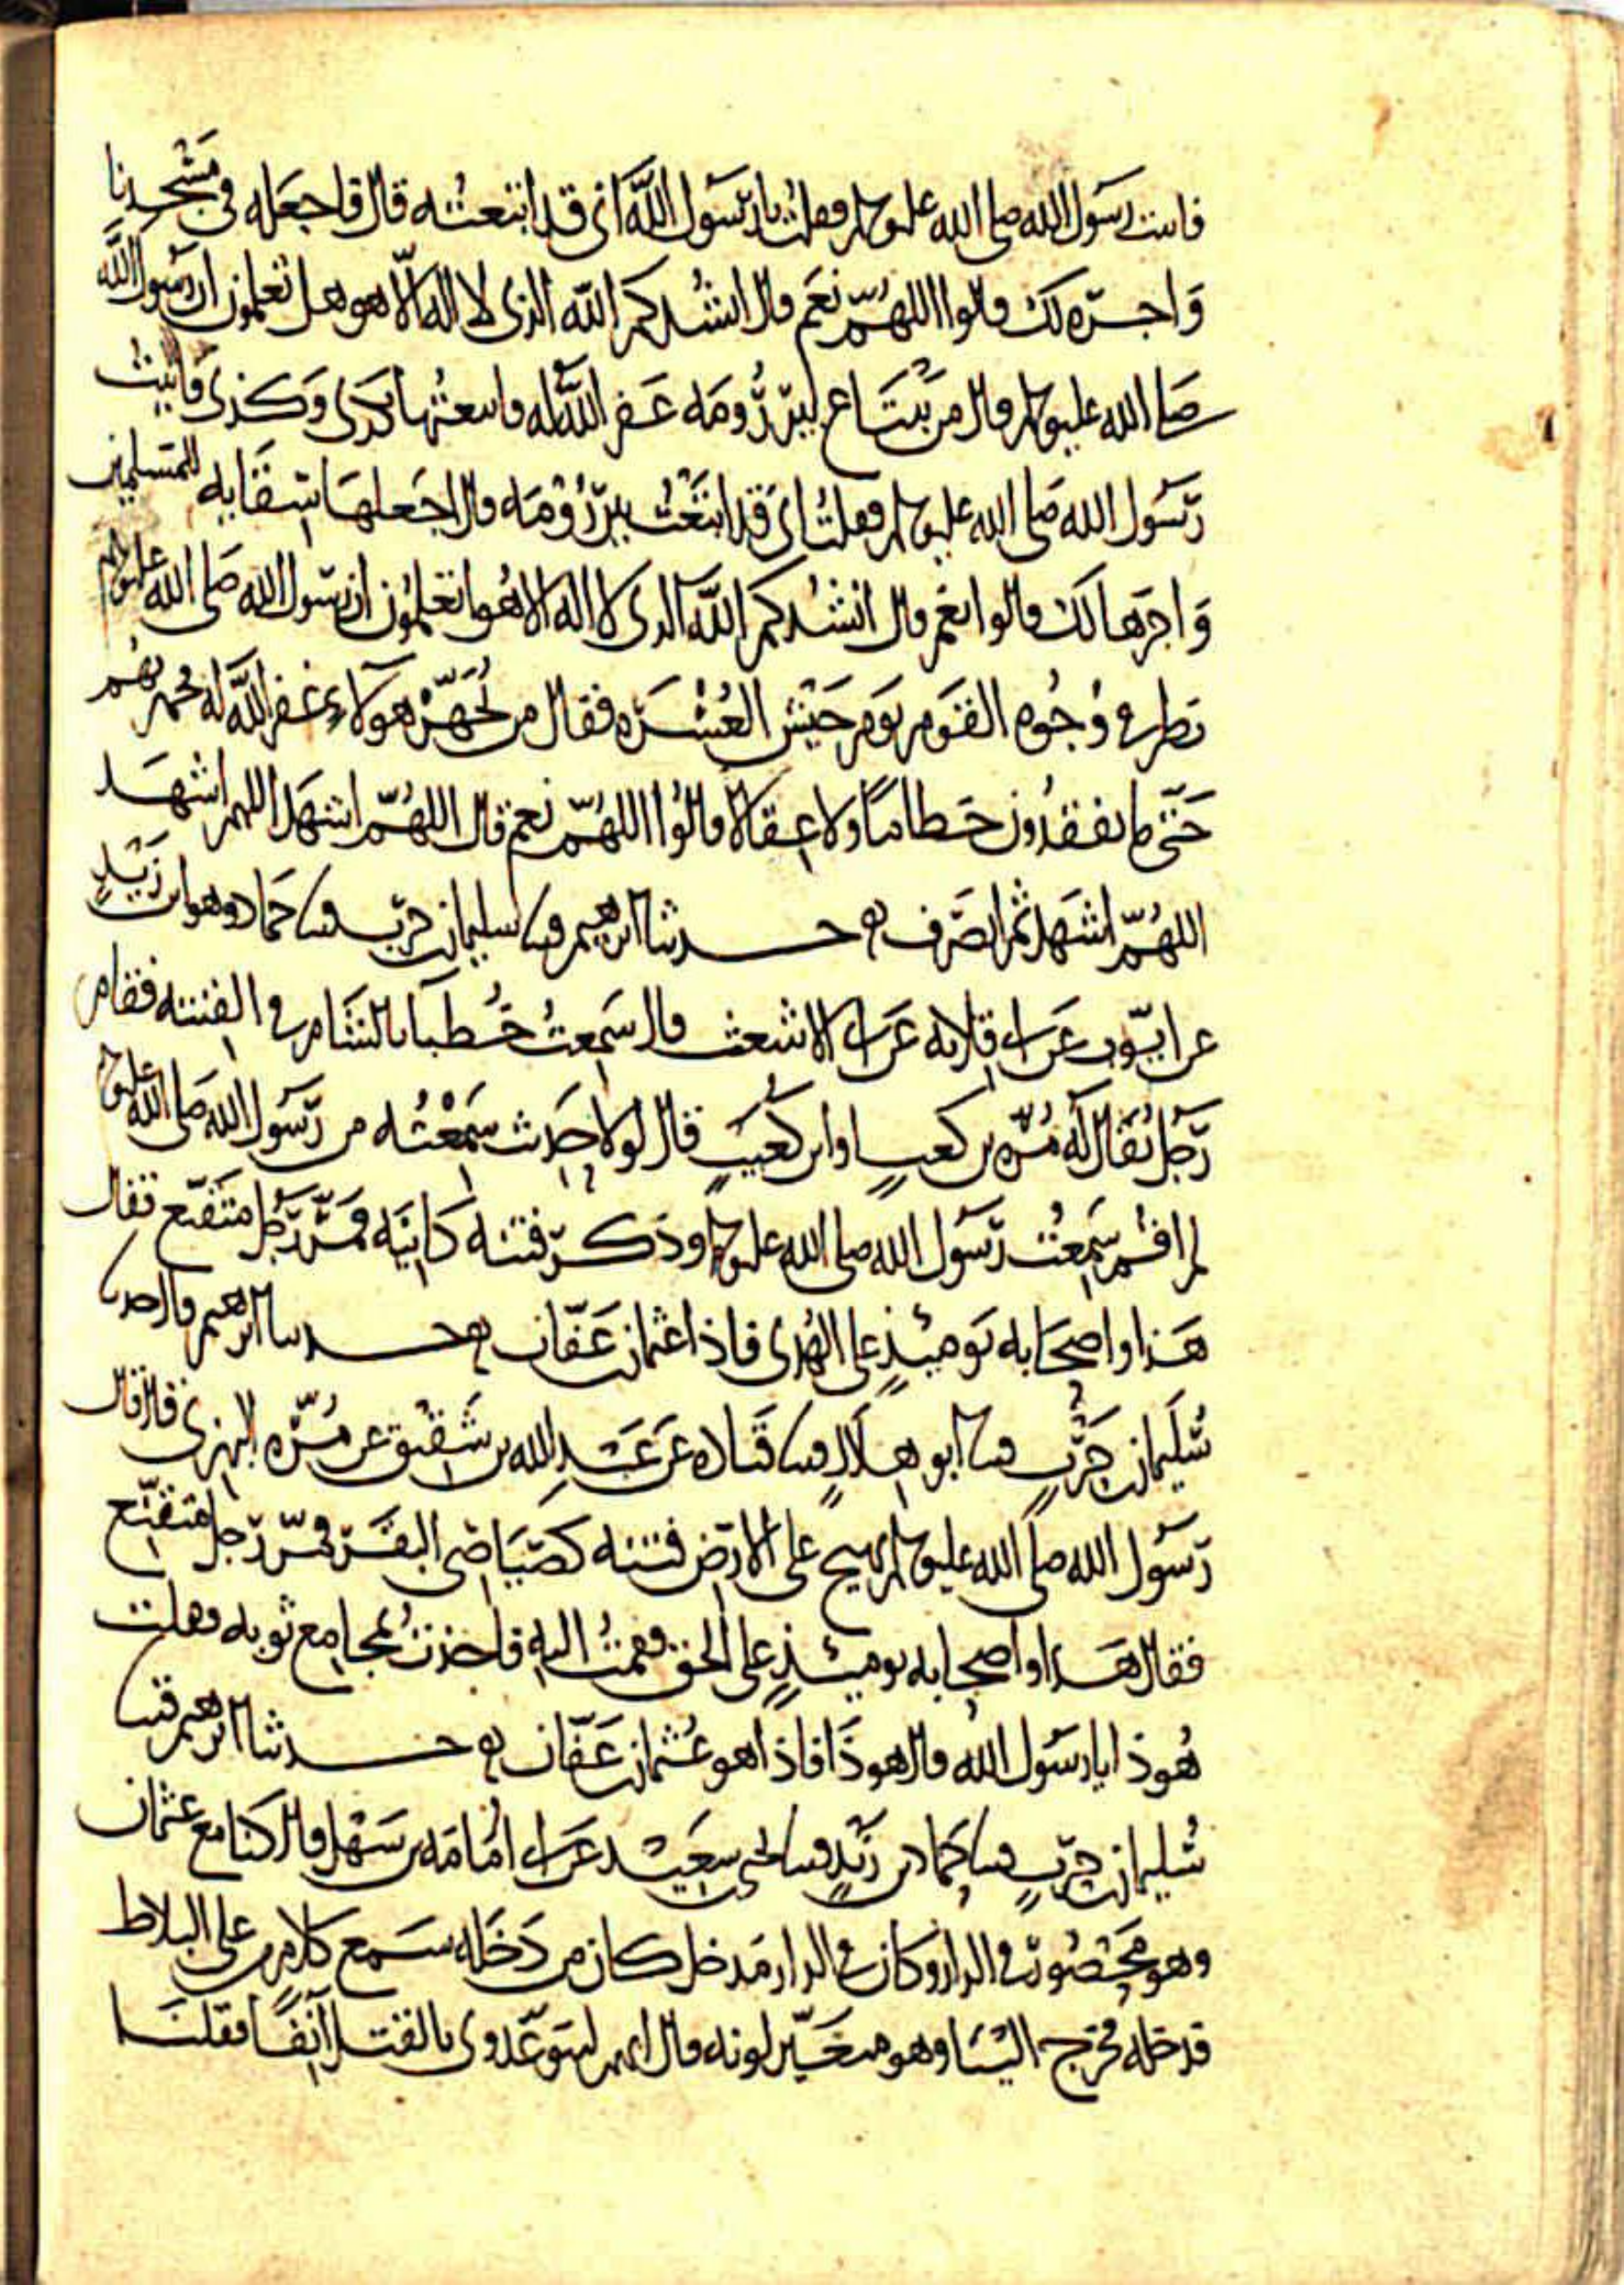 فاتيت رسول الله صلى الله عليه وسلم فقلت يا رسول الله انى قد ابتعته قال فاجعله فى مسجدنا
وَاجره لك قالوا اللهمّ نعم قال انشدكم الله الذى لا اله الّا هو هل تعلمون ان رسول الله
صلى الله عليه وسلم قال من يبتاع بير رُومَه غفر الله له فابتعتُها بكذى وكذى فاتيتُ
رسول الله صلى الله عليه وسلم فقلت انى قد ابتعتُ بير رُومَه قال اجعلها سِقايه للمسلمين
وَاجرها لك قالوا نعم قال انشدكم الله الذى لا اله الا هو اتعلمون ان رسول الله صلى الله عليه وسلم
نظر فى وُجُوه القوم يوم جَيش العُسْرَه فقال من يُجَهّز هولاء غفر الله له فجهزتهم
حَتّى ما يفقدون خطاما ولا عِقالا قالوا اللهُمّ نعم قال اللهُمّ اشهَد اللهم اشهد
اللهُمّ اشهد ثم انصَرف حدثنا ابرهيم قثنا سليمان بن حرب قثنا حماد وهو ابن زيد
عن ايّوب عن ابى قِلابه عن ابى الاشعث قال سَمِعتُ خُطبآ بالشام فى الفتنه فقام
رَجُل يُقال لَه مُرّه بن كعبٍ او ابن كعبٍ قال لولا حديث سَمِعْتُه من رَسُول الله صلى الله عليه
لم اقم سَمِعتُ رَسُول الله صلى الله عليه وسلم وذكر فتنه كاينَه فمَرّ رَجُل متقنّع فقال
هَذا واصحابه يَوميئذٍ على الهُدى فاذا عثمان بن عفّان حدثنا ابرهيم قال حدثنا
سُليمان بن حَرْبٍ قثنا ابو هلالٍ قثنا قتاده عن عَبْدِ الله بن شَقيق عن مُرّه البهزى قال قال
رَسُول الله صلى الله عليه وسلم يهيج على الارض فتنه كصَيَاصى البقر فمرّ رَجل متقنّع
فقال هَذا واصحابه يوميئذٍ على الحق فقمتُ اليه فاخذتُ بمجامع ثوبه فقلت
هُوذا يا رسُول الله قال هوذَا فاذا هو عُثمان بن عَفّان حدثنا ابرهيم قثنا
سُليمان بن حربٍ قثنا حماد بن زَيْدٍ قثنا يحيى بن سعيد عن ابى امُامَه بن سَهْل قال كنا مع عثمان
وهو مَحْصُورٌ فى الدار وكان فى الدار مَدخل كان من دَخَله سَمع كلام من على البلاط
فدخله فخرج الينا وهو متغيّر لونه قال انهم ليتوعّدونى بالقتل آنِفًا فقلنا